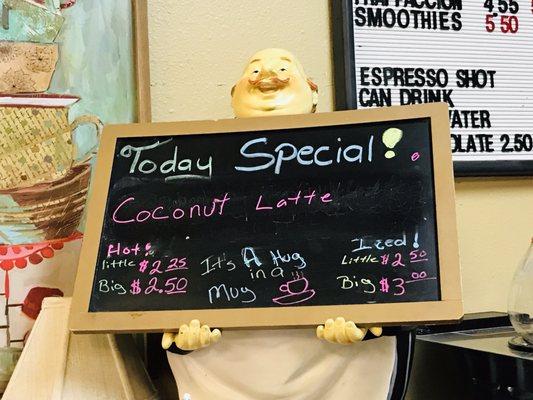 Today Special!
Coconut Latte
Hot!
little $2.25
Big $2.50
It's A Hug
in a
Mug
Iced!
Little $2.50
Big $3.00
4.55
SMOOTHIES 5.50
ESPRESSO SHOT
CAN DRINK
WATER
2.50